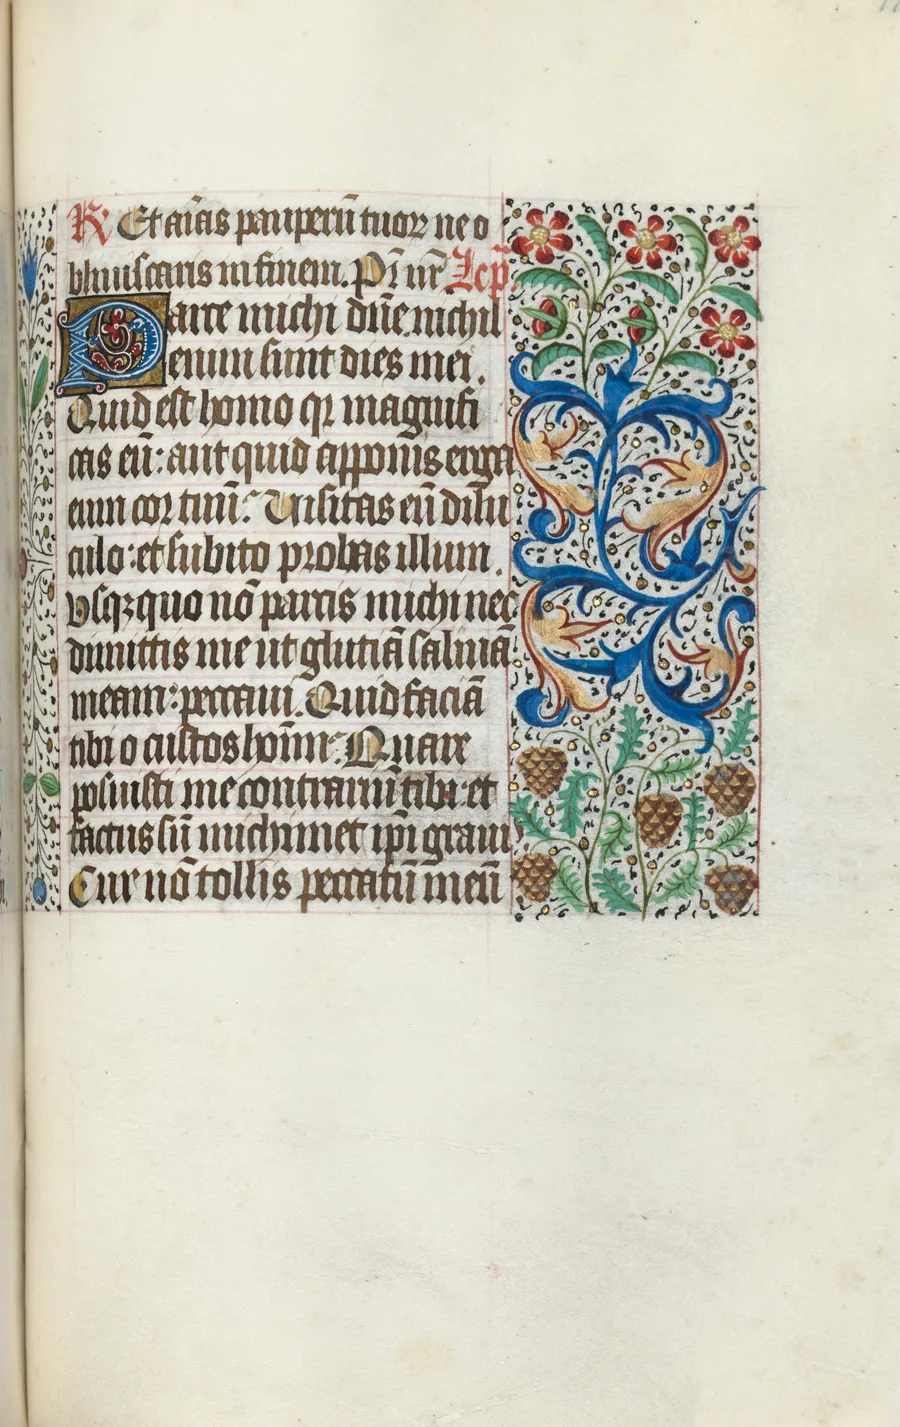 R Et aīas pauperū tuoꝝ ne o
bliuiscaris in finem. Pr̄ nr̄ Lcō.
Parce michi dn̄e nichil
enim sunt dies mei.
Quid est homo qꝛ magnifi
cas eū: aut quid apponis erga
eum cor tuū: Uisitas eū dilu
culo: et subito probas illum.
Vsqꝫ quo nō parcis michi nec
dimittis me ut glutiā saliuā
meam: peccaui. Quid faciā
tibi o custos hoīm: Quare
posuisti me contrariū tibi: et
factus sū michimet ip̄i grauis
Cur nō tollis peccatū meū